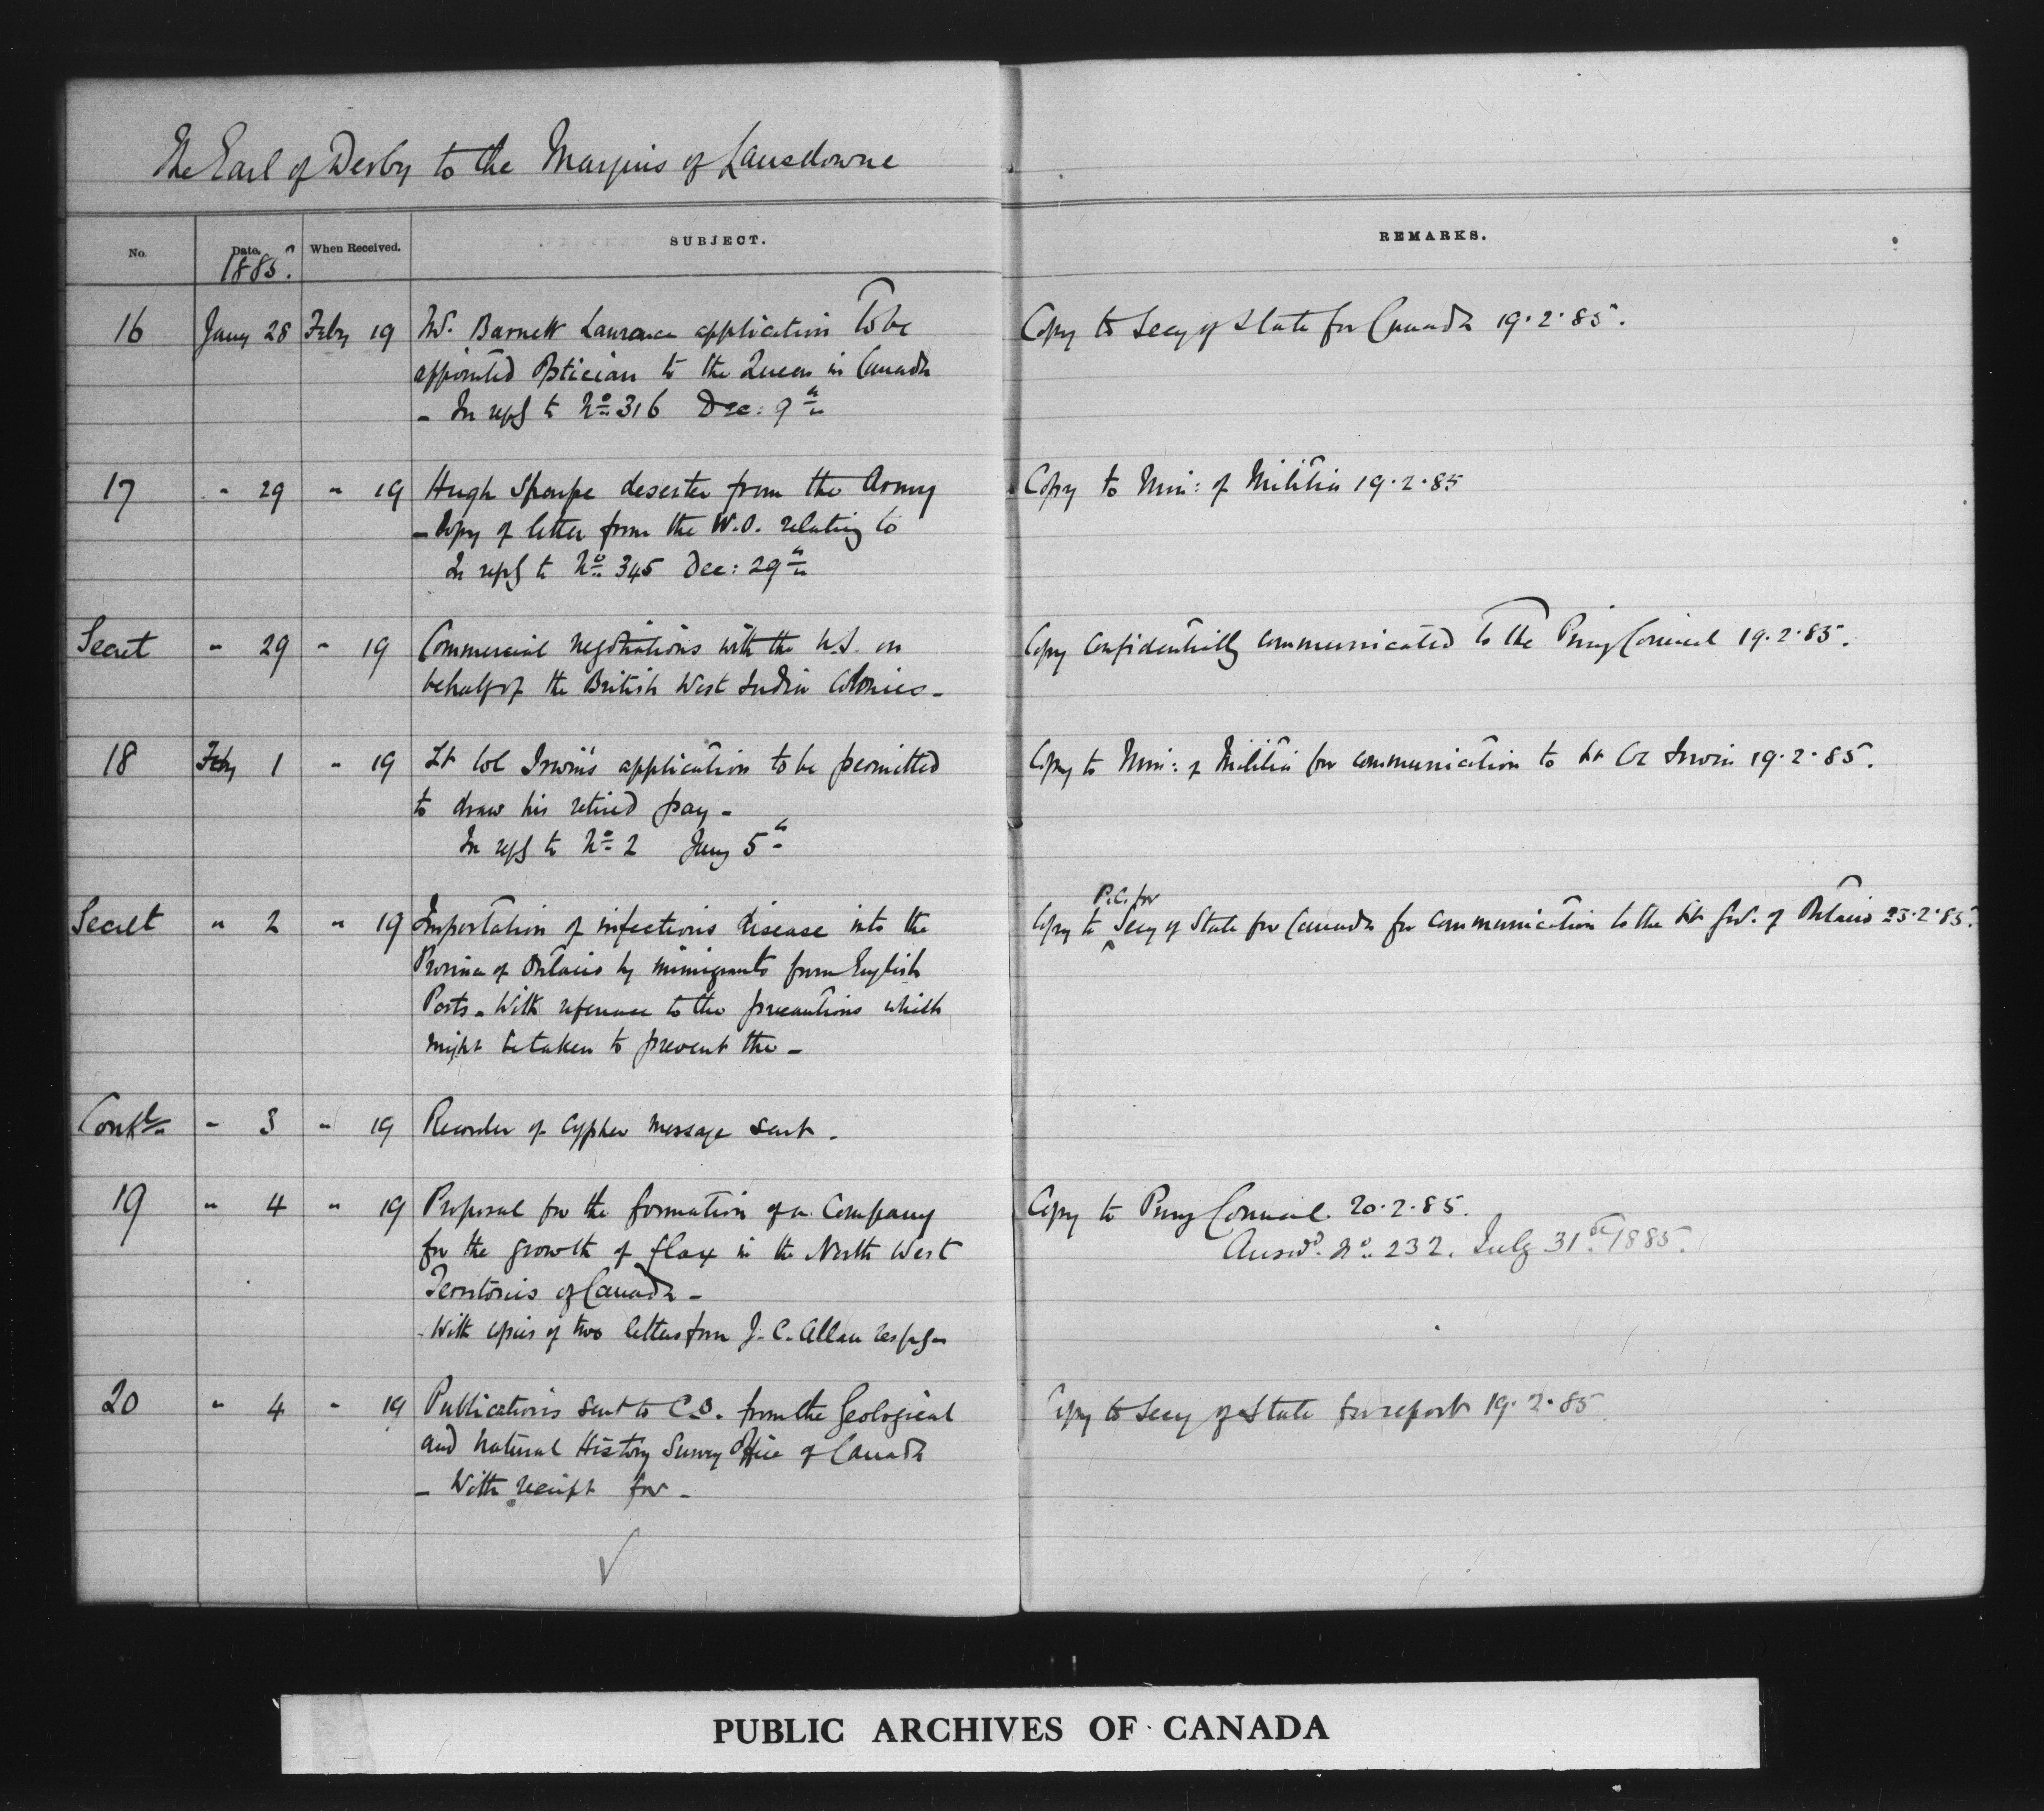 The Earl of Derby to the Marquis of Lansdowne
No. Date. When Received. SUBJECT. REMARKS.
1885.
16 Jany 28 Feby 19 Mr. Barnett Laurance application to be Copy to Secy of State for Canada 19.2.85.
appointed Optician to the Queen in Canada
- In reply to No 316 Dec: 9th
17 " 29 " 19 Hugh Sharpe deserter from the Army Copy to Min: of Militia 19.2.85
- Copy of letter from the W.O. relating to
In reply to No 345 Dec: 29th
Secret " 29 " 19 Commercial negotiations with the U.S. on Copy confidentially communicated to the Privy Council 19.2.85.
behalf of the British West India Colonies -
18 Feby 1 " 19 Lt Col Irwin's application to be permitted Copy to Min: of Militia for communication to Lt Col Irwin 19.2.85.
to draw his retired pay -
In reply to No 2 Jany 5th
P.C. for
Secret " 2 " 19 Importation of infectious disease into the Copy to Secy of State for Canada for communication to the Lt Gov. of Ontario 23.2.85.
Province of Ontario by immigrants from English
Ports - With reference to the precautions which
might be taken to prevent the -
Confl " 3 " 19 Recorder of cypher message sent -
19 " 4 " 19 Proposal for the formation of a Company Copy to Privy Council. 20.2.85.
for the growth of flax in the North West Answd. No. 232. July 31st 1885.
Territories of Canada -
- With copies of two letters from J. C. Allan respg -
20 " 4 " 19 Publications sent to C.O. from the Geological Copy to Secy of State for report 19.2.85.
and Natural History Survey Office of Canada
- With receipt for -
PUBLIC ARCHIVES OF CANADA